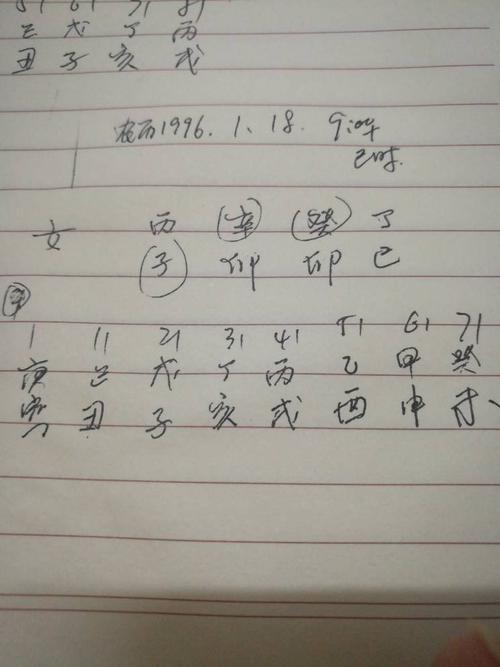 51 61 71 81
己 戊 丁 丙
丑 子 亥 戌
农历1996. 1. 18. 9:00
巳时.
女 丙 辛 癸 丁
子 卯 卯 巳
1 11 21 31 41 51 61 71
庚 己 戊 丁 丙 乙 甲 癸
寅 丑 子 亥 戌 酉 申 未